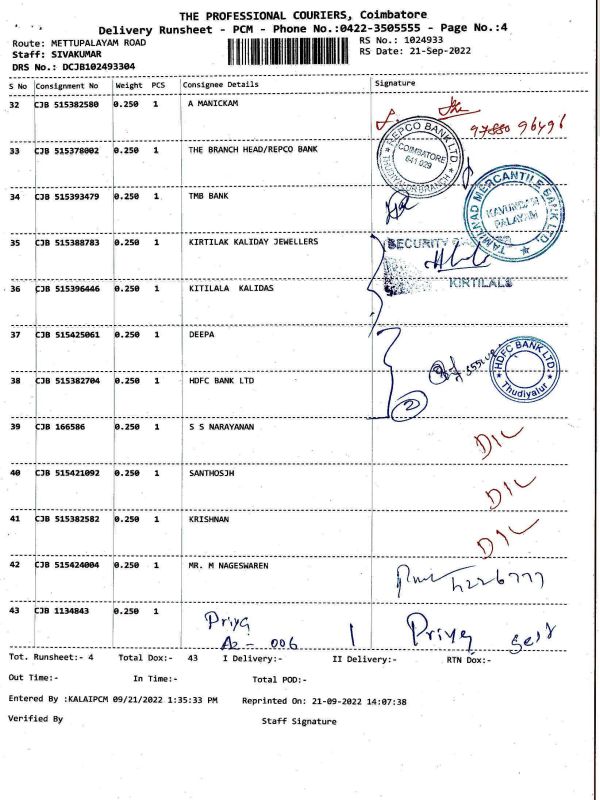 THE PROFESSIONAL COURIERS, Coimbatore
Delivery Runsheet - PCM - Phone No.:0422-3505555 - Page No.:4
Route: METTUPALAYAM ROAD
RS No.: 1024933
Staff: SIVAKUMAR
RS Date: 21-Sep-2022
DRS No.: DCJB102493304
S No Consignment No Weight PCS Consignee Details Signature
32 CJB 515382580 0.250 1 A MANICKAM
97880 96496
33 CJB 515378002 0.250 1 THE BRANCH HEAD/REPCO BANK
REPCO BANK LTD.
COIMBATORE
641 029
THUDIYALUR BRANCH
34 CJB 515393479 0.250 1 TMB BANK
TAMILNAD MERCANTILE BANK LTD.
KAVUNDAM
PALAYAM
35 CJB 515388783 0.250 1 KIRTILAK KALIDAY JEWELLERS
SECURITY
36 CJB 515396446 0.250 1 KITILALA KALIDAS
KIRTILALS
37 CJB 515425061 0.250 1 DEEPA
HDFC BANK LTD.
Thudiyalur
38 CJB 515382704 0.250 1 HDFC BANK LTD
2
39 CJB 166586 0.250 1 S S NARAYANAN
DIL
40 CJB 515421092 0.250 1 SANTHOSJH
DIL
41 CJB 515382582 0.250 1 KRISHNAN
DIL
42 CJB 515424004 0.250 1 MR. M NAGESWAREN
43 CJB 1134843 0.250 1
Priya
A2 - 006 1 Priya
Tot. Runsheet:- 4 Total Dox:- 43 I Delivery:- II Delivery:- RTN Dox:-
Out Time:- In Time:- Total POD:-
Entered By :KALAIPCM 09/21/2022 1:35:33 PM Reprinted On: 21-09-2022 14:07:38
Verified By Staff Signature